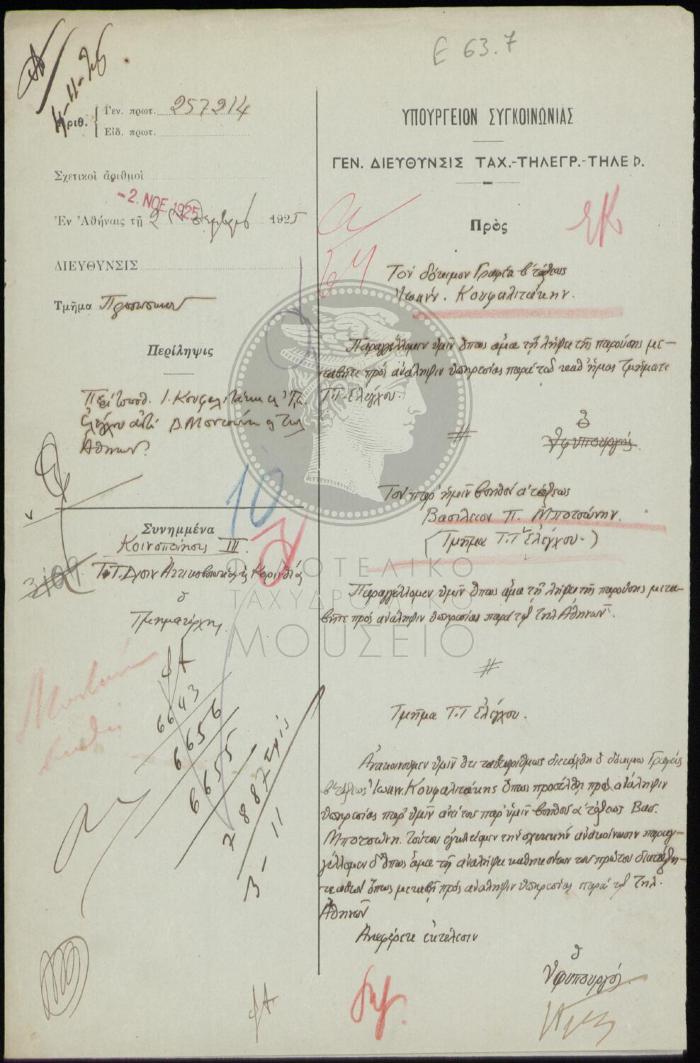 E 63.7
4-11-25
Ἀριθ. Γεν. πρωτ. 257214
Εἰδ. πρωτ.
Σχετικοὶ ἀριθμοὶ
-2. ΝΟΕ 1925
Ἐν Ἀθήναις τῇ 2 1925
ΔΙΕΥΘΥΝΣΙΣ
Τμῆμα Προσωπικοῦ
Περίληψις
Περὶ τοποθ. Ι. Κουφαλιτάκη εἰς Τμ.
Ἐλέγχου ἀντὶ Δ. Μποτσώνη εἰς Τηλ.
Ἀθηνῶν.
10
Συνημμένα
Κοινοποίησις
Τ.Τ.
ὁ
Τμηματάρχης
6643
6656
6655
2887
3-11
ΥΠΟΥΡΓΕΙΟΝ ΣΥΓΚΟΙΝΩΝΙΑΣ
ΓΕΝ. ΔΙΕΥΘΥΝΣΙΣ ΤΑΧ.-ΤΗΛΕΓΡ.-ΤΗΛΕΦ.
Πρὸς
Τὸν δόκιμον Γραφέα β΄ τάξεως
Ἰωάνν. Κουφαλιτάκην.
Παραγγέλλομεν ὑμῖν ὅπως ἅμα τῇ λήψει τῆς παρούσης με-
ταβῆτε πρὸς ἀνάληψιν ὑπηρεσίας παρὰ τῷ καθ' ἡμᾶς τμήματι
Τ.Τ. Ἐλέγχου.
#
ὁ
Ὑφυπουργὸς
Τὸν παρ' ἡμῖν βοηθὸν α΄ τάξεως
Βασίλειον Π. Μποτσώνην.
(Τμῆμα Τ.Τ. Ἐλέγχου.)
Παραγγέλλομεν ὑμῖν ὅπως ἅμα τῇ λήψει τῆς παρούσης μετα-
βῆτε πρὸς ἀνάληψιν ὑπηρεσίας παρὰ τῷ Τηλ. Ἀθηνῶν.
#
Τμῆμα Τ.Τ. Ἐλέγχου.
Ἀνακοινοῦμεν ὑμῖν ὅτι ταὐταρίθμως διετάχθη ὁ δόκιμος Γραφεὺς
β΄ τάξεως Ἰωάν. Κουφαλιτάκης ὅπως προσέλθῃ πρὸς ἀνάληψιν
ὑπηρεσίας παρ' ὑμῖν ἀντὶ τοῦ παρ' ὑμῖν βοηθοῦ α΄ τάξεως Βασ.
Μποτσώνη. Τούτου ἐγκλείομεν τὴν σχετικὴν ἀνακοίνωσιν παραγ-
γέλλομεν δ' ὅπως ἅμα τῇ ἀναλήψει καθηκόντων τοῦ πρώτου
ὅπως μεταβῇ πρὸς ἀνάληψιν ὑπηρεσίας παρὰ τῷ Τηλ.
Ἀθηνῶν
Ἀναφέρετε ἐκτέλεσιν
ὁ
Ὑφυπουργὸς
ΦΙΛΟΤΕΛΙΚΟ
ΤΑΧΥΔΡΟΜΙΚΟ
ΜΟΥΣΕΙΟ